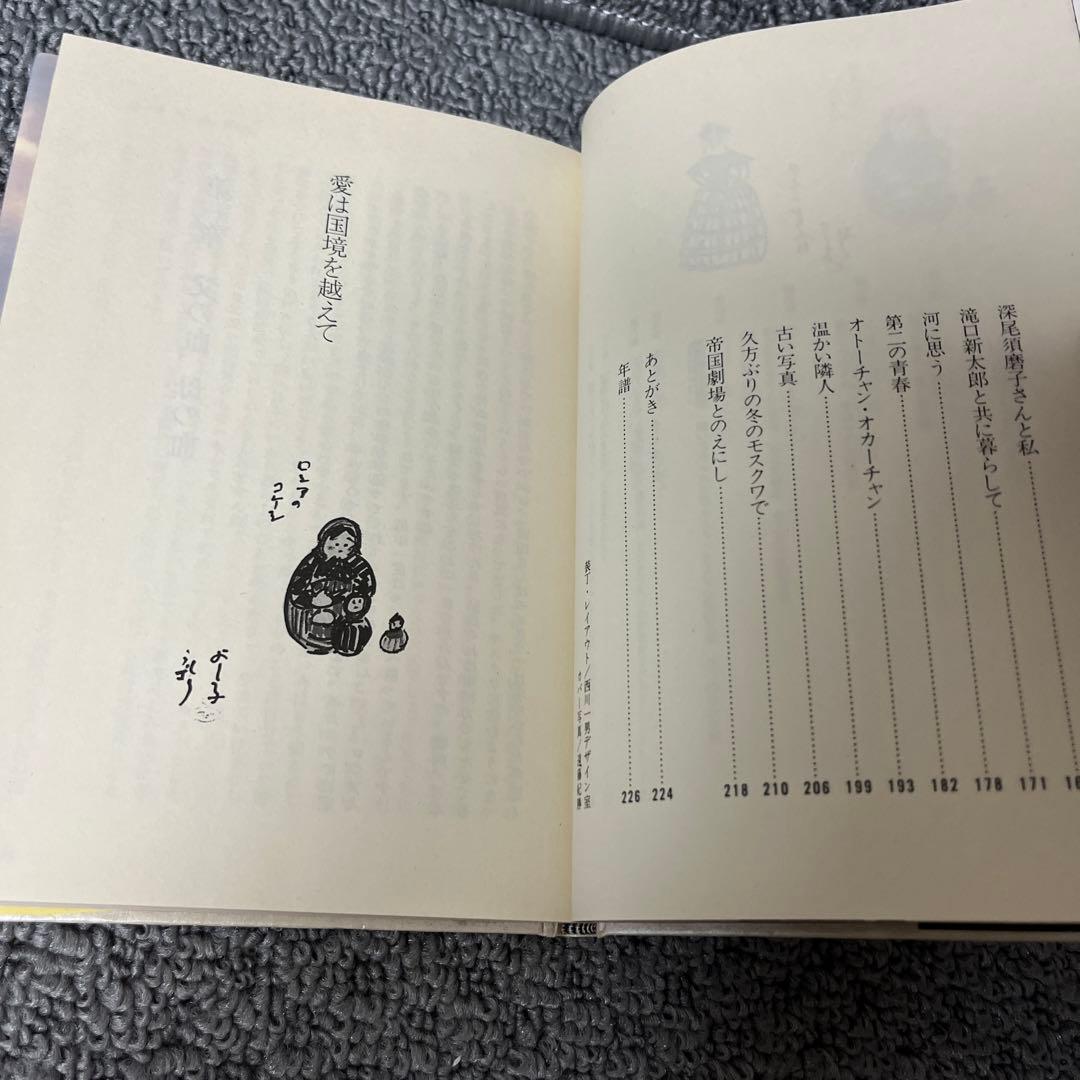 深尾須磨子さんと私
滝口新太郎と共に暮らして 171
河に思う 178
第二の青春 182
オトーチャン・オカーチャン 193
温かい隣人 199
古い写真 206
久方ぶりの冬のモスクワで 210
帝国劇場とのえにし 218
あとがき 224
年譜 226
装丁・レイアウト/西川一男デザイン室
カバー写真/遠藤紀勝
愛は国境を越えて
ロシアの
コケシ